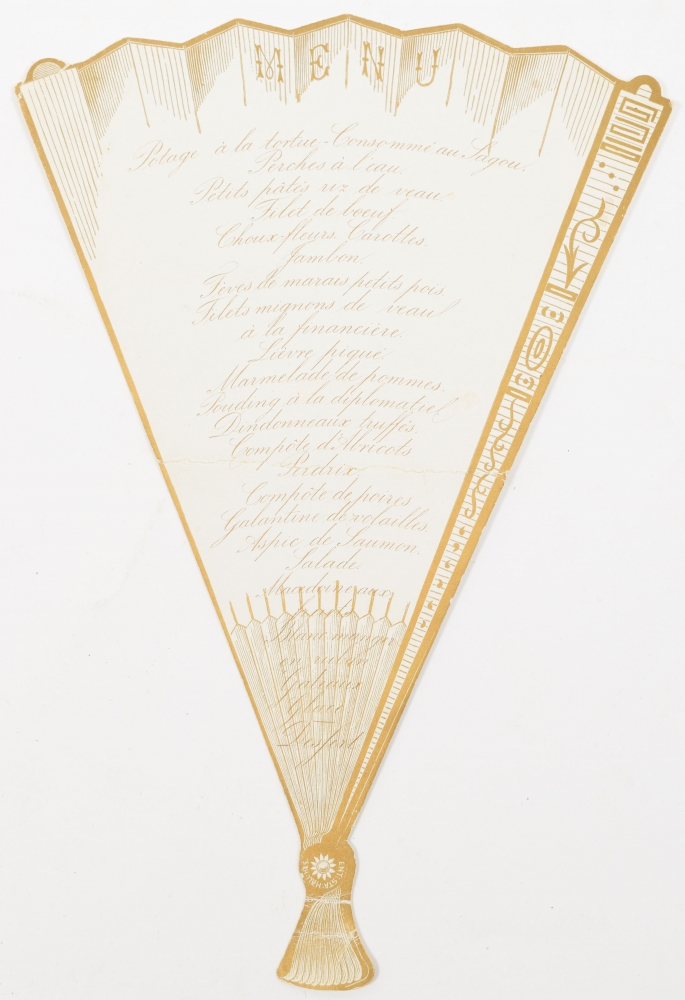 MENU
Potage à la tortue, Consommé au Sagou.
Perches à l'eau.
Petits pâtés riz de veau.
Filet de boeuf
Choux-fleurs, Carottes
Jambon
Fèves de marais petits pois
Filets mignons de veau
à la financière.
Lièvre piqué
Marmelade de pommes.
Pouding à la diplomatiel
Dindonneaux truffés
Compôte d'Abricots
Perdrix
Compôte de poires
Galantine de volailles.
Aspic de Saumon.
Salade
Blanc manger
en ruban
Gateaux
Dessert